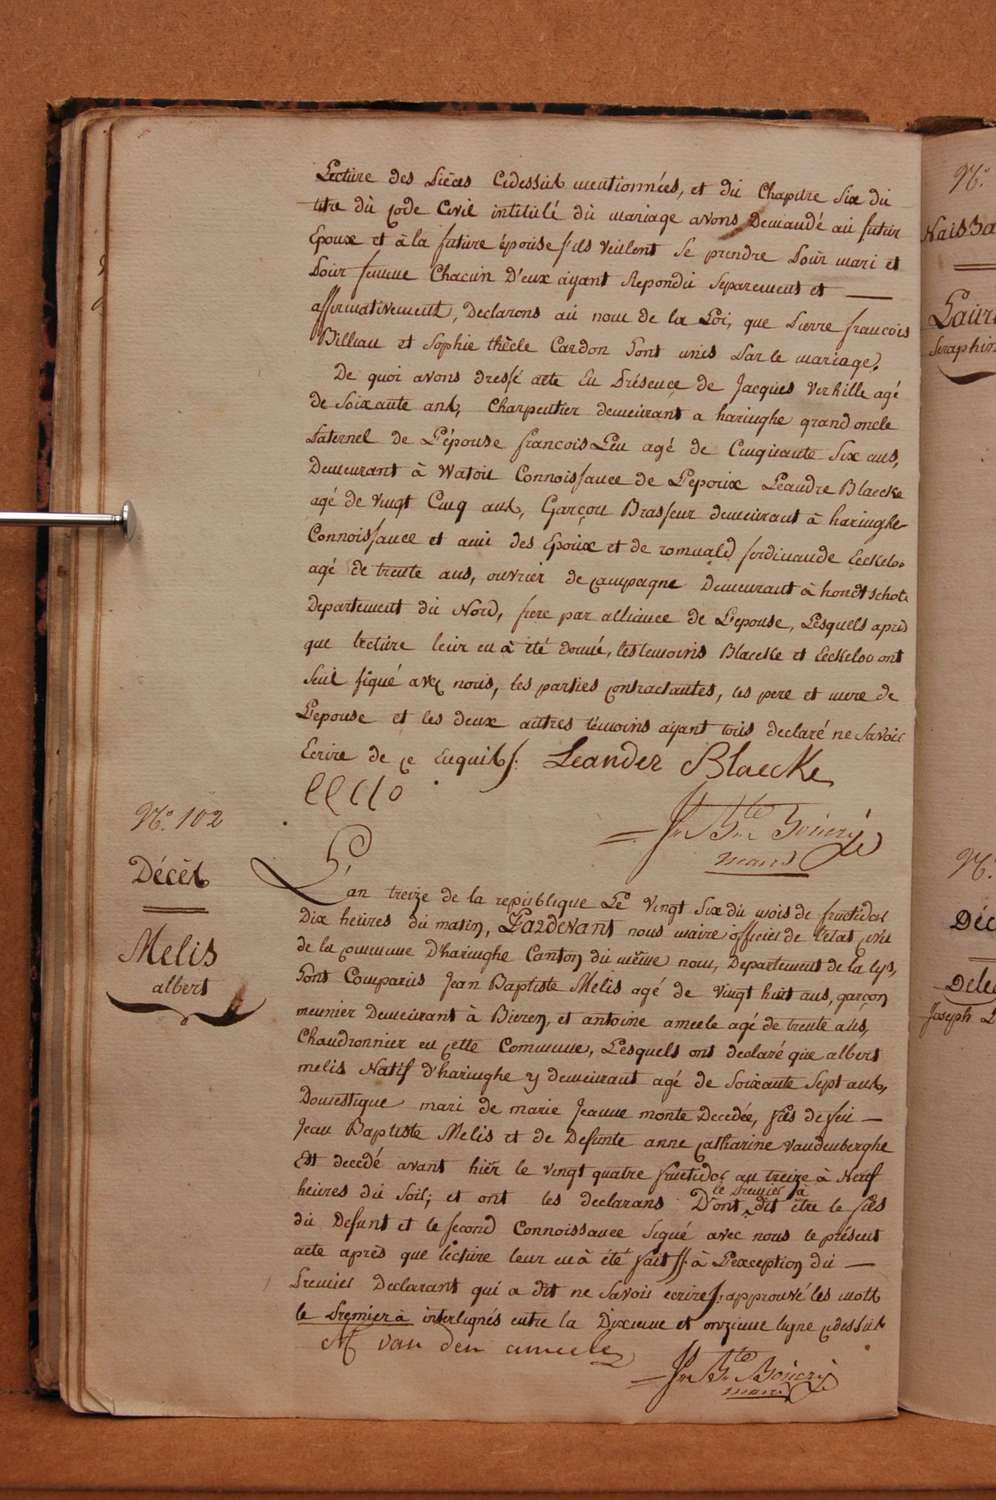 Lecture des Pièces Cidessus mentionnées, et du Chapitre Six du
titre du Code Civil intitulé du mariage avons Demandé au futur
Epoux et à la future épouse s'ils veulent Se prendre Pour mari et
Pour femme Chacun D'eux ayant Repondu Separement et —
affirmativement, Declarons au nom de la Loi, que Pierre francois
Billiau et Sophie thècle Cardon Sont unis Par le mariage.
De quoi avons dressé acte En Présence de Jacques Verhille agé
de Soixante ans, Charpentier demeurant a haringhe grand oncle
Paternel de L'épouse francois Leu agé de Cinquante Six ans,
Demeurant à Watou Connoissance de L'époux Leandre Blaecke
agé de vingt Cinq ans, Garçon Brasseur demeurant à haringhe
Connoissance et ami des Epoux et de romuald ferdinande Eeckeloo
agé de trente ans, ouvrier de campagne Demeurant à hondtschote
Departement du Nord, frere par alliance de L'epouse, Lesquels après
que lecture leur en à été Donné, les temoins Blaecke et Eeckeloo ont
Seul signé avec nous, les parties contractantes, les pere et mere de
L'epouse et les deux autres témoins ayant tous declaré ne Savoir
Ecrire de ce Enquis /. Leander Blaecke
EEclo
Jn Bte Bouery
maire
N.o 102
Décès
Melis
albert
L'an treize de la republique Le Vingt Six du mois de fructidor
Dix heures du matin, Pardevant nous maire officier de l'etat civil
de la commune D'haringhe Canton du même nom, Departement de la Lys,
Sont Comparus Jean Baptiste Melis agé de Vingt huit ans, garçon
meunier Demeurant à Bieren, et antoine ameele agé de trente ans,
Chaudronnier en cette Commune, Lesquels ont declaré que albert
melis Natif d'haringhe y demeurant agé de Soixante Sept ans,
Domestique mari de marie Jeanne monte Decedée, fils de feu —
Jean Baptiste Melis et de Defunte anne Catharine Vandenberghe
Est decedé avant hiër le Vingt quatre fructidor an treize à Neuf
heures du Soir; et ont les declarans D'ont le Premier à dit être le fils
du Defunt et le second Connoissance Signé avec nous le présent
acte après que lecture leur en à été fait // à L'exception du —
Premier Declarant qui a dit ne Savoir ecrire /. approuvé les mots
le Premier à interlignés entre la Dixieme et onzieme ligne cidessus
M van den ameele
Jn Bte Bouery
maire
N.o
Naissa
Seraphin
N.o
Déc
Joseph